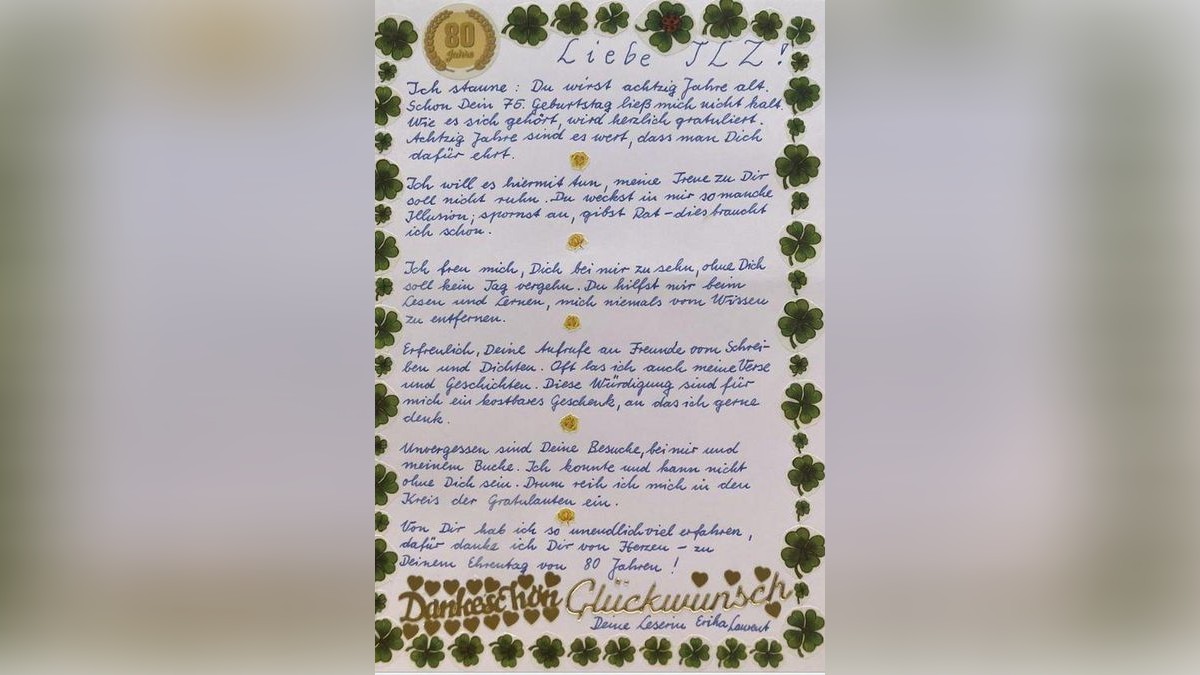 80
Jahre
Liebe TLZ!
Ich staune: Du wirst achtzig Jahre alt.
Schon Dein 75. Geburtstag ließ mich nicht kalt.
Wie es sich gehört, wird herzlich gratuliert.
Achtzig Jahre sind es wert, dass man Dich
dafür ehrt.
Ich will es hiermit tun, meine Treue zu Dir
soll nicht ruhn. Du weckst in mir so manche
Illusion; spornst an, gibst Rat - dies braucht
ich schon.
Ich freu mich, Dich bei mir zu sehn, ohne Dich
soll kein Tag vergehn. Du hilfst mir beim
Lesen und Lernen, mich niemals vom Wissen
zu entfernen.
Erfreulich, Deine Aufrufe an Freunde vom Schrei-
ben und Dichten. Oft las ich auch meine Verse
und Geschichten. Diese Würdigung sind für
mich ein kostbares Geschenk, an das ich gerne
denk.
Unvergessen sind Deine Besuche, bei mir und
meinem Buche. Ich konnte und kann nicht
ohne Dich sein. Drum reih ich mich in den
Kreis der Gratulanten ein.
Von Dir hab ich so unendlich viel erfahren,
dafür danke ich Dir von Herzen - zu
Deinem Ehrentag von 80 Jahren!
Dankeschön Glückwunsch
Deine Leserin Erika Laurent